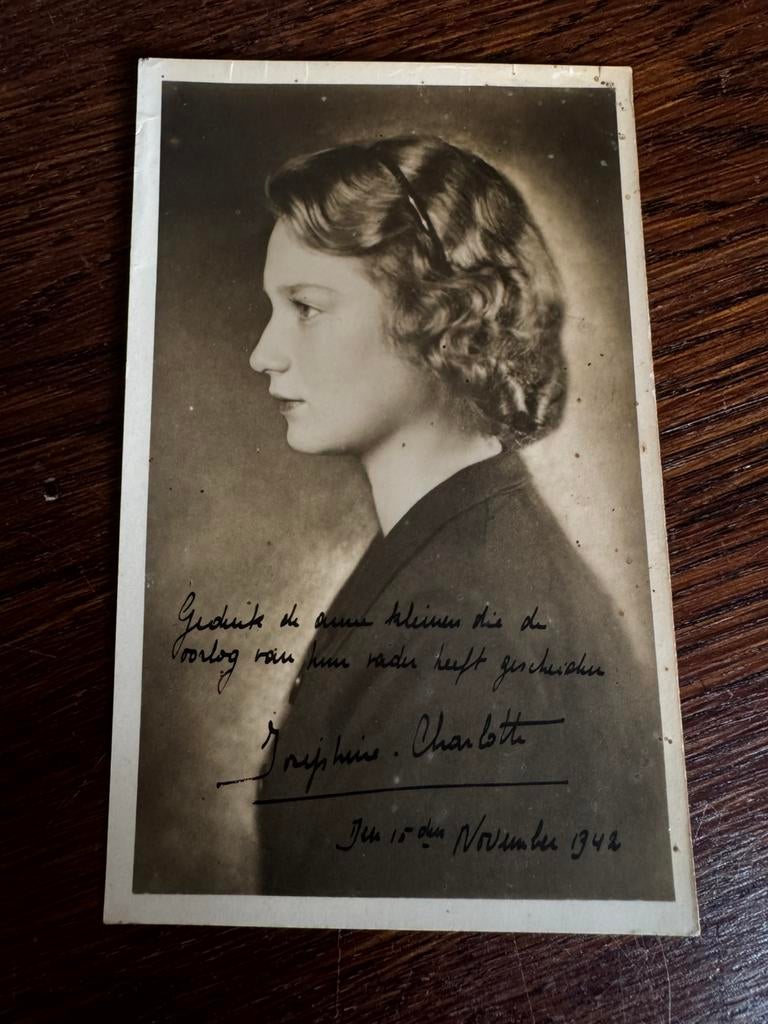 Gedenk de arme kleinen die de
oorlog van hun vader heeft gescheiden
Joséphine-Charlotte
Den 15 den November 1942